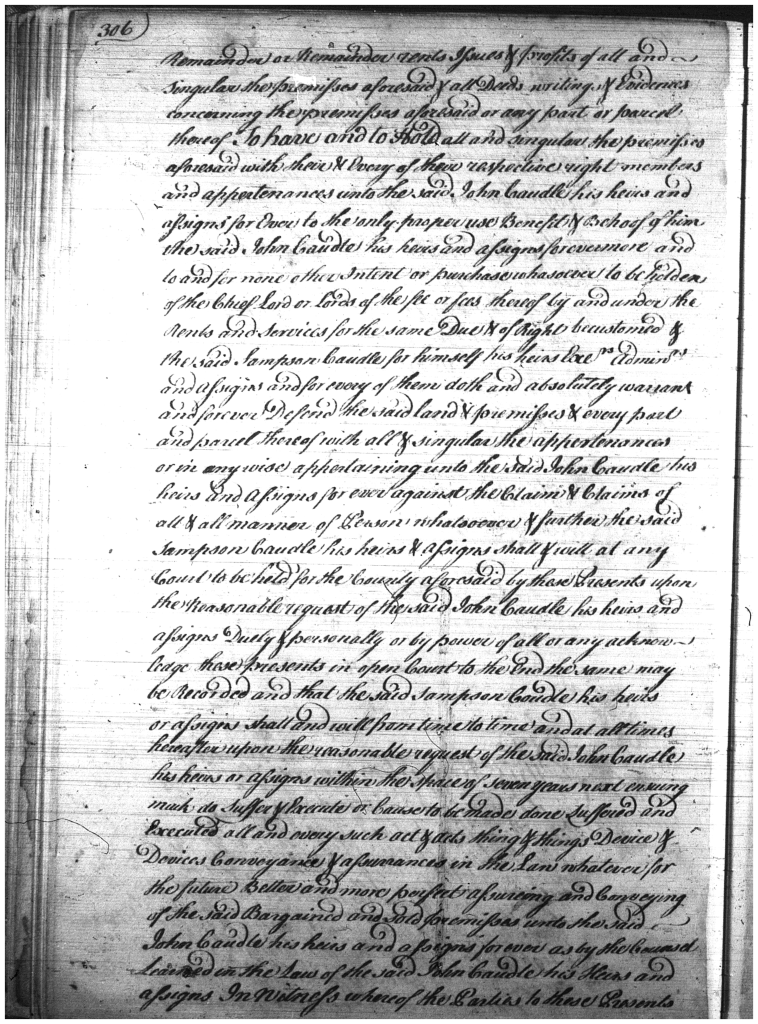 306
Remainder or Remainder rents Issues & profits of all and
Singular the premisses aforesaid & all Deeds writings & Evidences
concerning the premisses aforesaid or any part or parcel
thereof To have and to Hold all and singular the premisses
aforesaid with their & Every of their respective right members
and appertenances unto the said John Caudle his heirs and
assigns for Ever to the only proper use Benefit & Behoof of him
the said John Caudle his heirs and assigns forevermore and
to and for none other Intent or purchase whasoever to be holden
of the Chief Lord or Lords of the fee or fees thereof by and under the
Rents and Services for the same Due & of Right becustomed &
the said Sampson Caudle for himself his heirs Exe.rs Admin.rs
and assigns and for every of them doth and absolutely warrant
and forever Defend the said land & premisses & every part
and parcel thereof with all & singular the appertenances
or in any wise appertaining unto the said John Caudle his
heirs and assigns for ever against the Claim & Claims of
all & all manner of Person whatsoever & further the said
Sampson Caudle his heirs & assigns shall & will at any
Court to be held for the County aforesaid by these Presents upon
the Reasonable request of the said John Caudle his heirs and
assigns Duely & personally or by power of all or any acknow-
ledge these presents in open Court to the End the same may
be Recorded and that the said Sampson Coudle his heirs
or assigns shall and will from time to time and at all times
hereafter upon the reasonable request of the said John Caudle
his heirs or assigns within the space of seven years next ensuing
make do Suffer & Execute or Cause to be made done Suffered and
Executed all and every such act & acts thing & things Device &
Devices Conveyance & assurances in the Law whatever for
the future Better and more perfect assureing and Conveying
of the said Bargained and sold premisses unto the said
John Caudle his heirs and assigns forever as by the Counsel
Learned in the Law of the said John Caudle his Heirs and
assigns In Witness whereof the Parties to these Presents